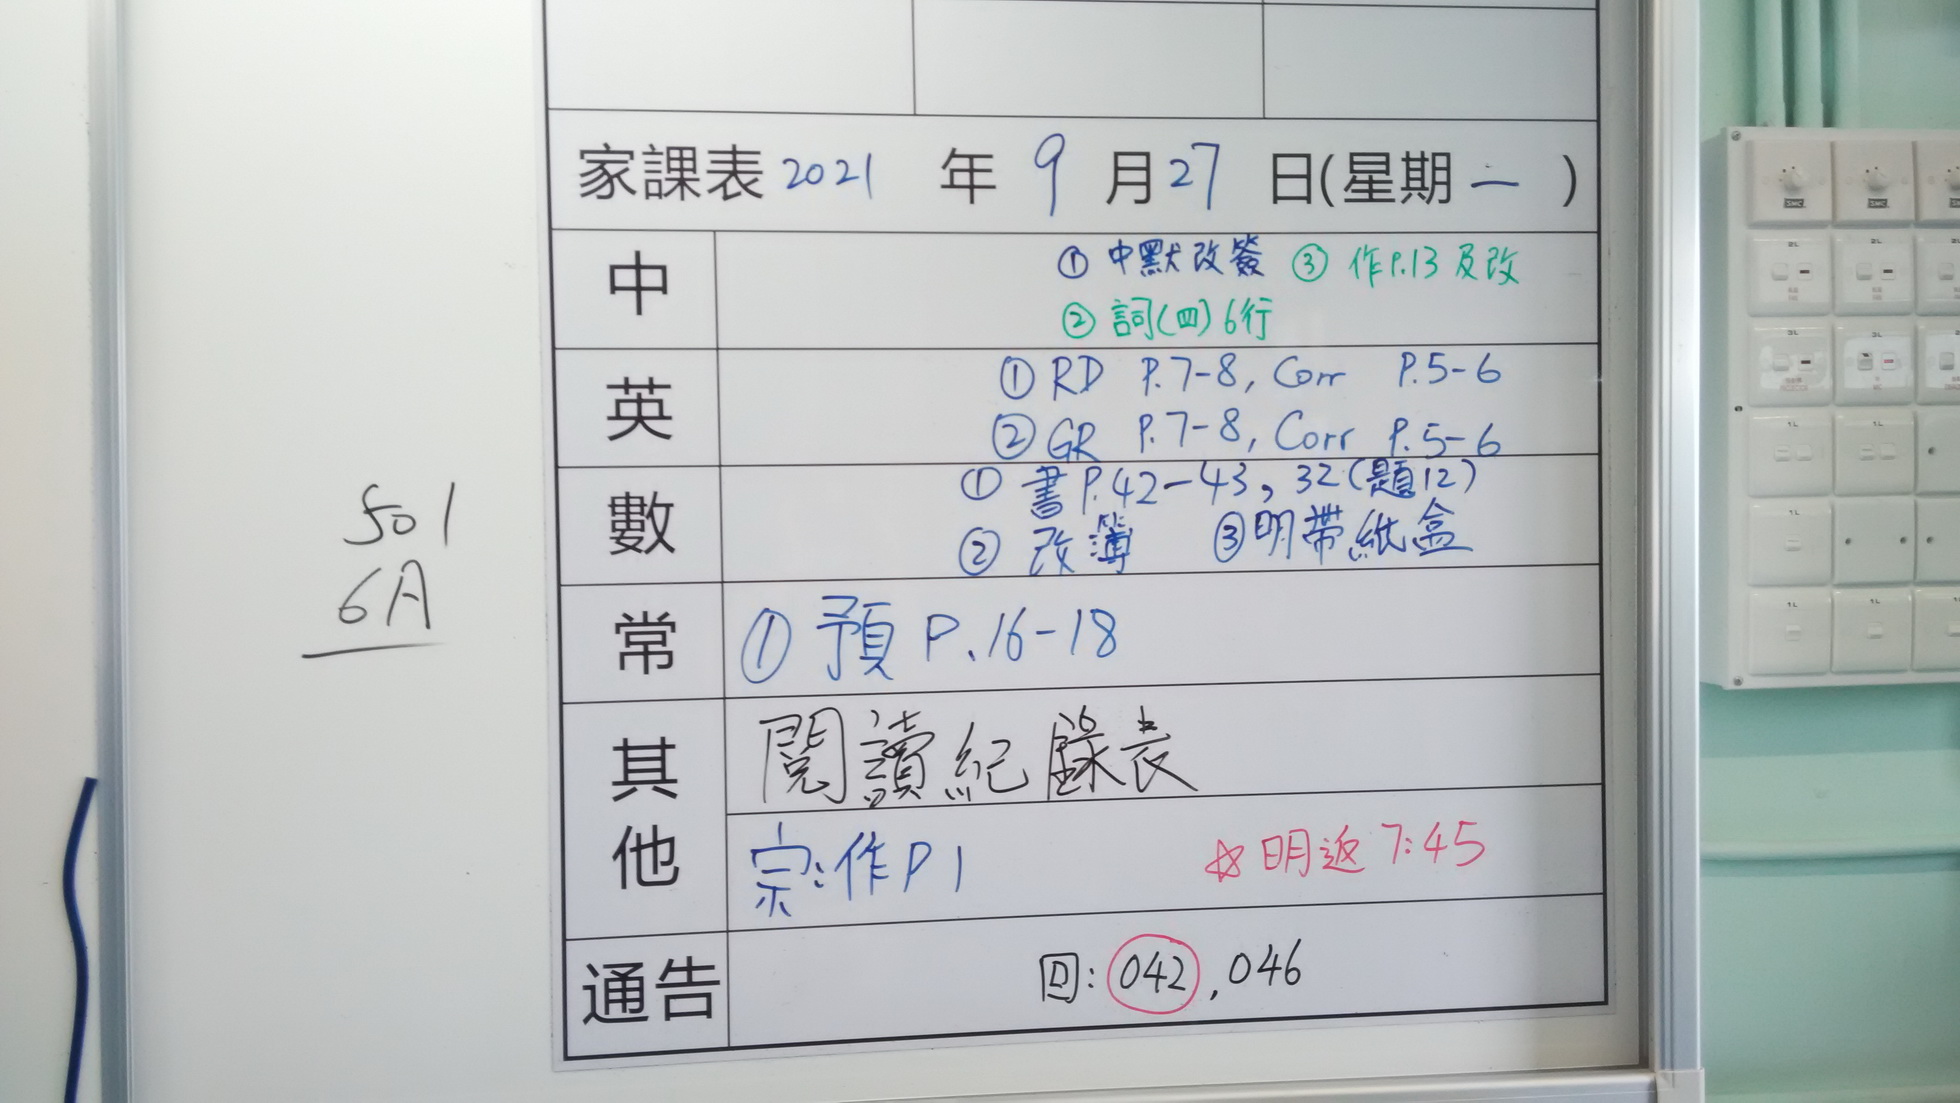 家課表 2021 年 9 月 27 日(星期 一 )
中
① 中默改簽 ③ 作P.13 及改
② 詞(四) 6行
英
① RD P.7-8, Corr P.5-6
② GR P.7-8, Corr P.5-6
數
① 書 P.42-43, 32(題12)
② 改簿 ③明帶紙盒
常
① 預 P.16-18
其他
閱讀紀錄表
宗:作P1 ☆明返 7:45
通告
回: 042, 046
501
6A